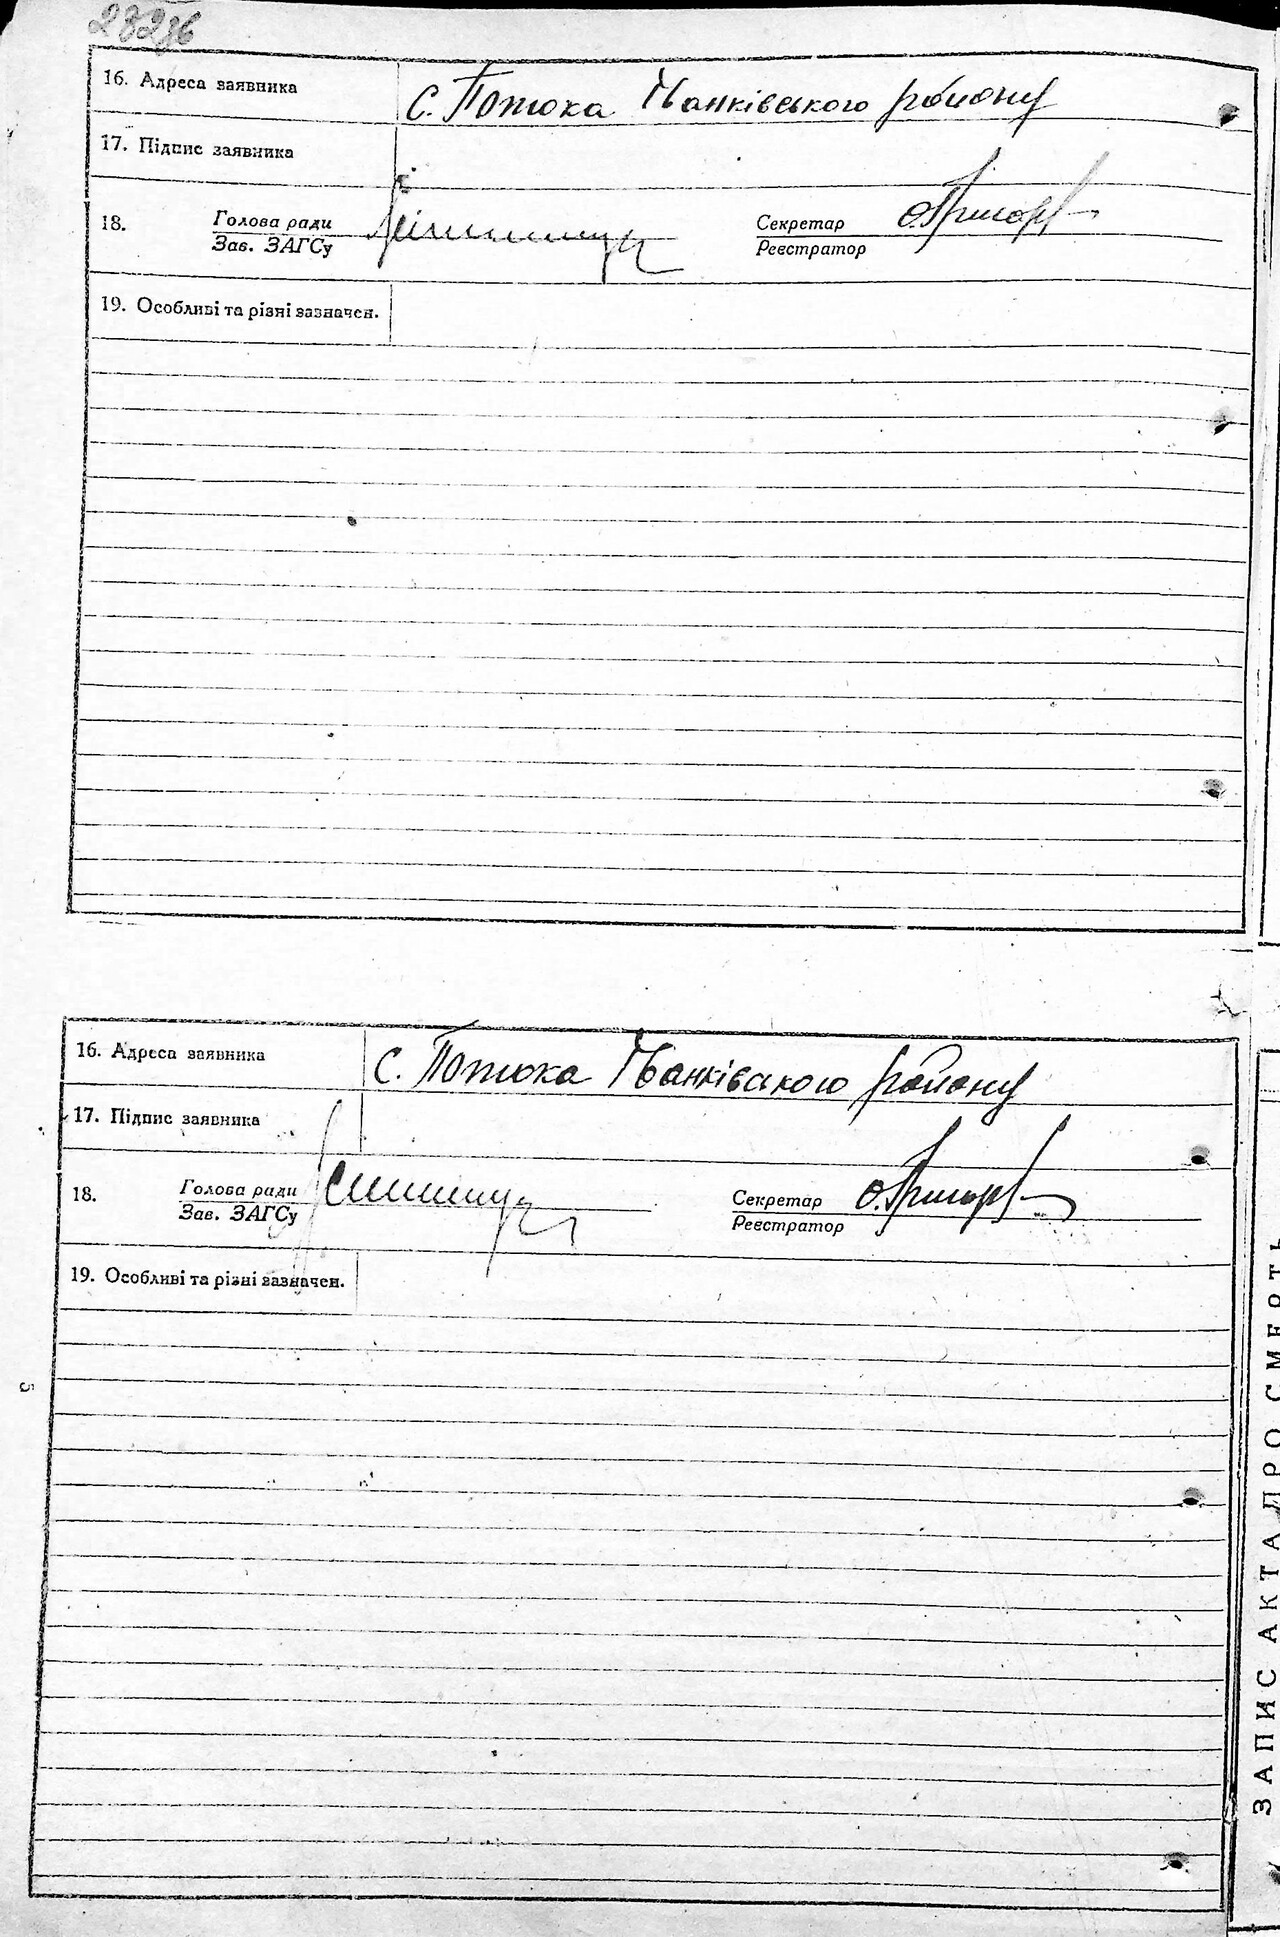 16. Адреса заявника с. Потока Манківського району
17. Підпис заявника
18. Голова ради Секретар
Зав. ЗАГСу Реєстратор
19. Особливі та різні зазначен.
16. Адреса заявника с. Потока Манківського району
17. Підпис заявника
18. Голова ради Секретар
Зав. ЗАГСу Реєстратор
19. Особливі та різні зазначен.
5
ЗАПИС АКТА ПРО СМЕРТЬ